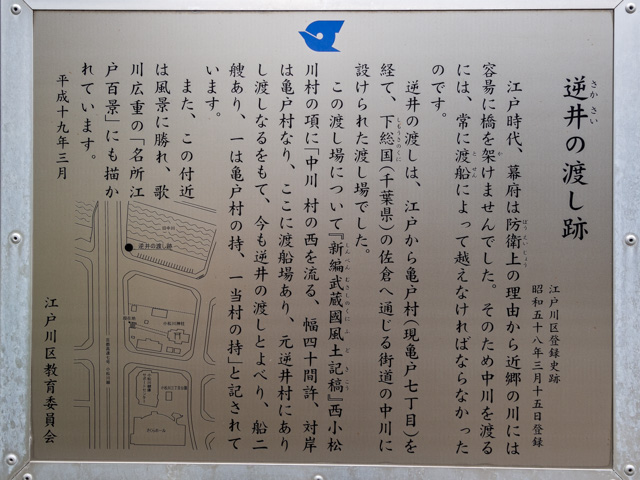 逆井の渡し跡
さか さい
江戸川区登録史跡
昭和五十八年三月十五日登録
江戸時代、幕府は防衛上の理由から近郷の川には
容易に橋を架けませんでした。そのため中川を渡る
には、常に渡船によって越えなければならなかった
のです。
逆井の渡しは、江戸から亀戸村(現亀戸七丁目)を
経て、下総国(千葉県)の佐倉へ通じる街道の中川に
設けられた渡し場でした。
この渡し場について『新編武蔵國風土記稿』西小松
川村の項に「中川 村の西を流る、幅四十間許、対岸
は亀戸村なり、ここに渡船場あり、元逆井村にあり
し渡しなるをもて、今も逆井の渡しとよべり、船二
艘あり、一は亀戸村の持、一当村の持」と記されて
います。
また、この付近
は風景に勝れ、歌
川広重の「名所江
戸百景」にも描か
れています。
平成十九年三月
江戸川区教育委員会
逆井の渡し跡